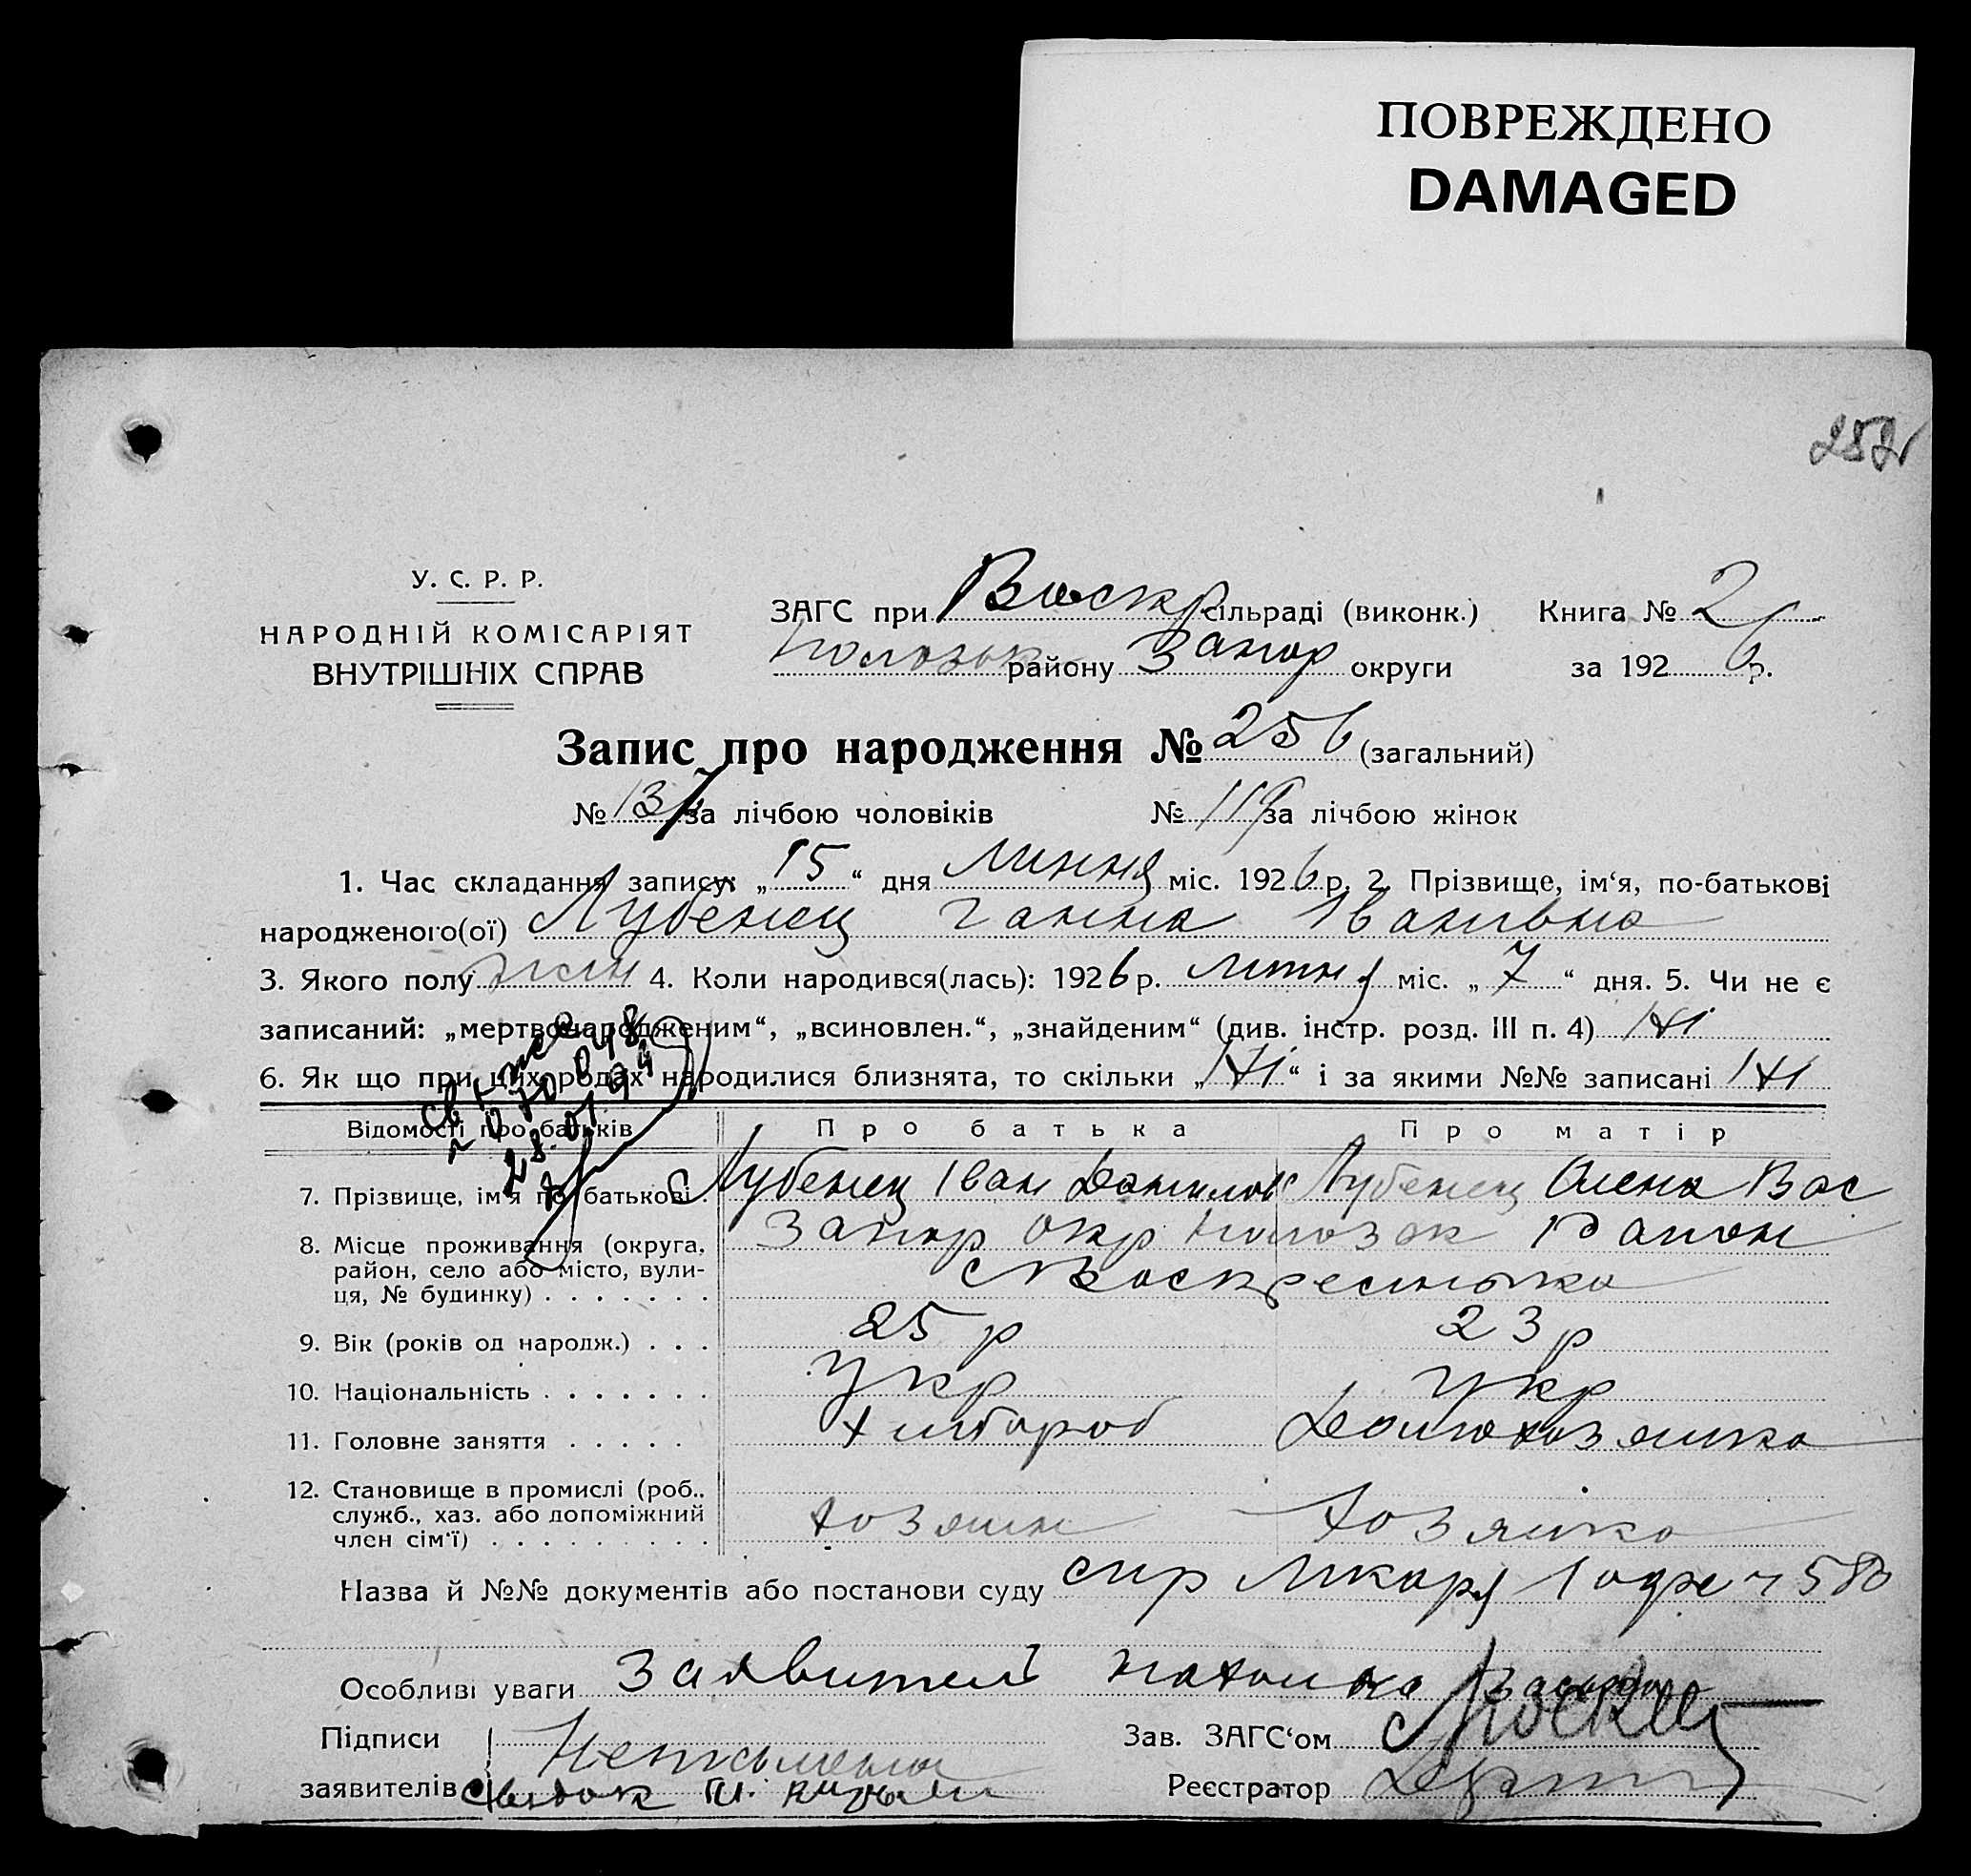 ПОВРЕЖДЕНО
DAMAGED
252
У. С. Р. Р.
НАРОДНІЙ КОМІСАРІЯТ
ВНУТРІШНІХ СПРАВ
ЗАГС при Воскр сільраді (виконк.) Книга № 2
району Запор округи за 1926 р.
Запис про народження № 256 (загальний)
№ 137 за лічбою чоловіків № 119 за лічбою жінок
1. Час складання запису: „15“ дня липня міс. 1926 р. 2. Прізвище, ім‘я, по-батькові
народженого(ої) Лубенец Ганна Іванівна
3. Якого полу жін 4. Коли народився(лась): 1926 р. липня міс. „7“ дня. 5. Чи не є
записаний: „мертвонародженим“, „всиновлен.“, „знайденим“ (див. інстр. розд. III п. 4) ні
6. Як що при цих родах народилися близнята, то скільки „ні“ і за якими №№ записані ні
Відомості про батьків Про батька Про матір
7. Прізвище, ім‘я по батькові Лубенец Іван Данилов Лубенец Олена Вас
8. Місце проживання (округа, Запор окр район
район, село або місто, вули- с Воскресинька
ця, № будинку)
9. Вік (років од народж.) 25 р 23 р
10. Національність Укр Укр
11. Головне заняття Хлібороб Домохозяйка
12. Становище в промислі (роб.,
служб., хаз. або допоміжний
член сім‘ї) хозяин хозяйка
Назва й №№ документів або постанови суду спр лікаря 580
Особливі уваги Заявитель
Підписи Неписьмена Зав. ЗАГС‘ом
заявителів Свидок Реєстратор